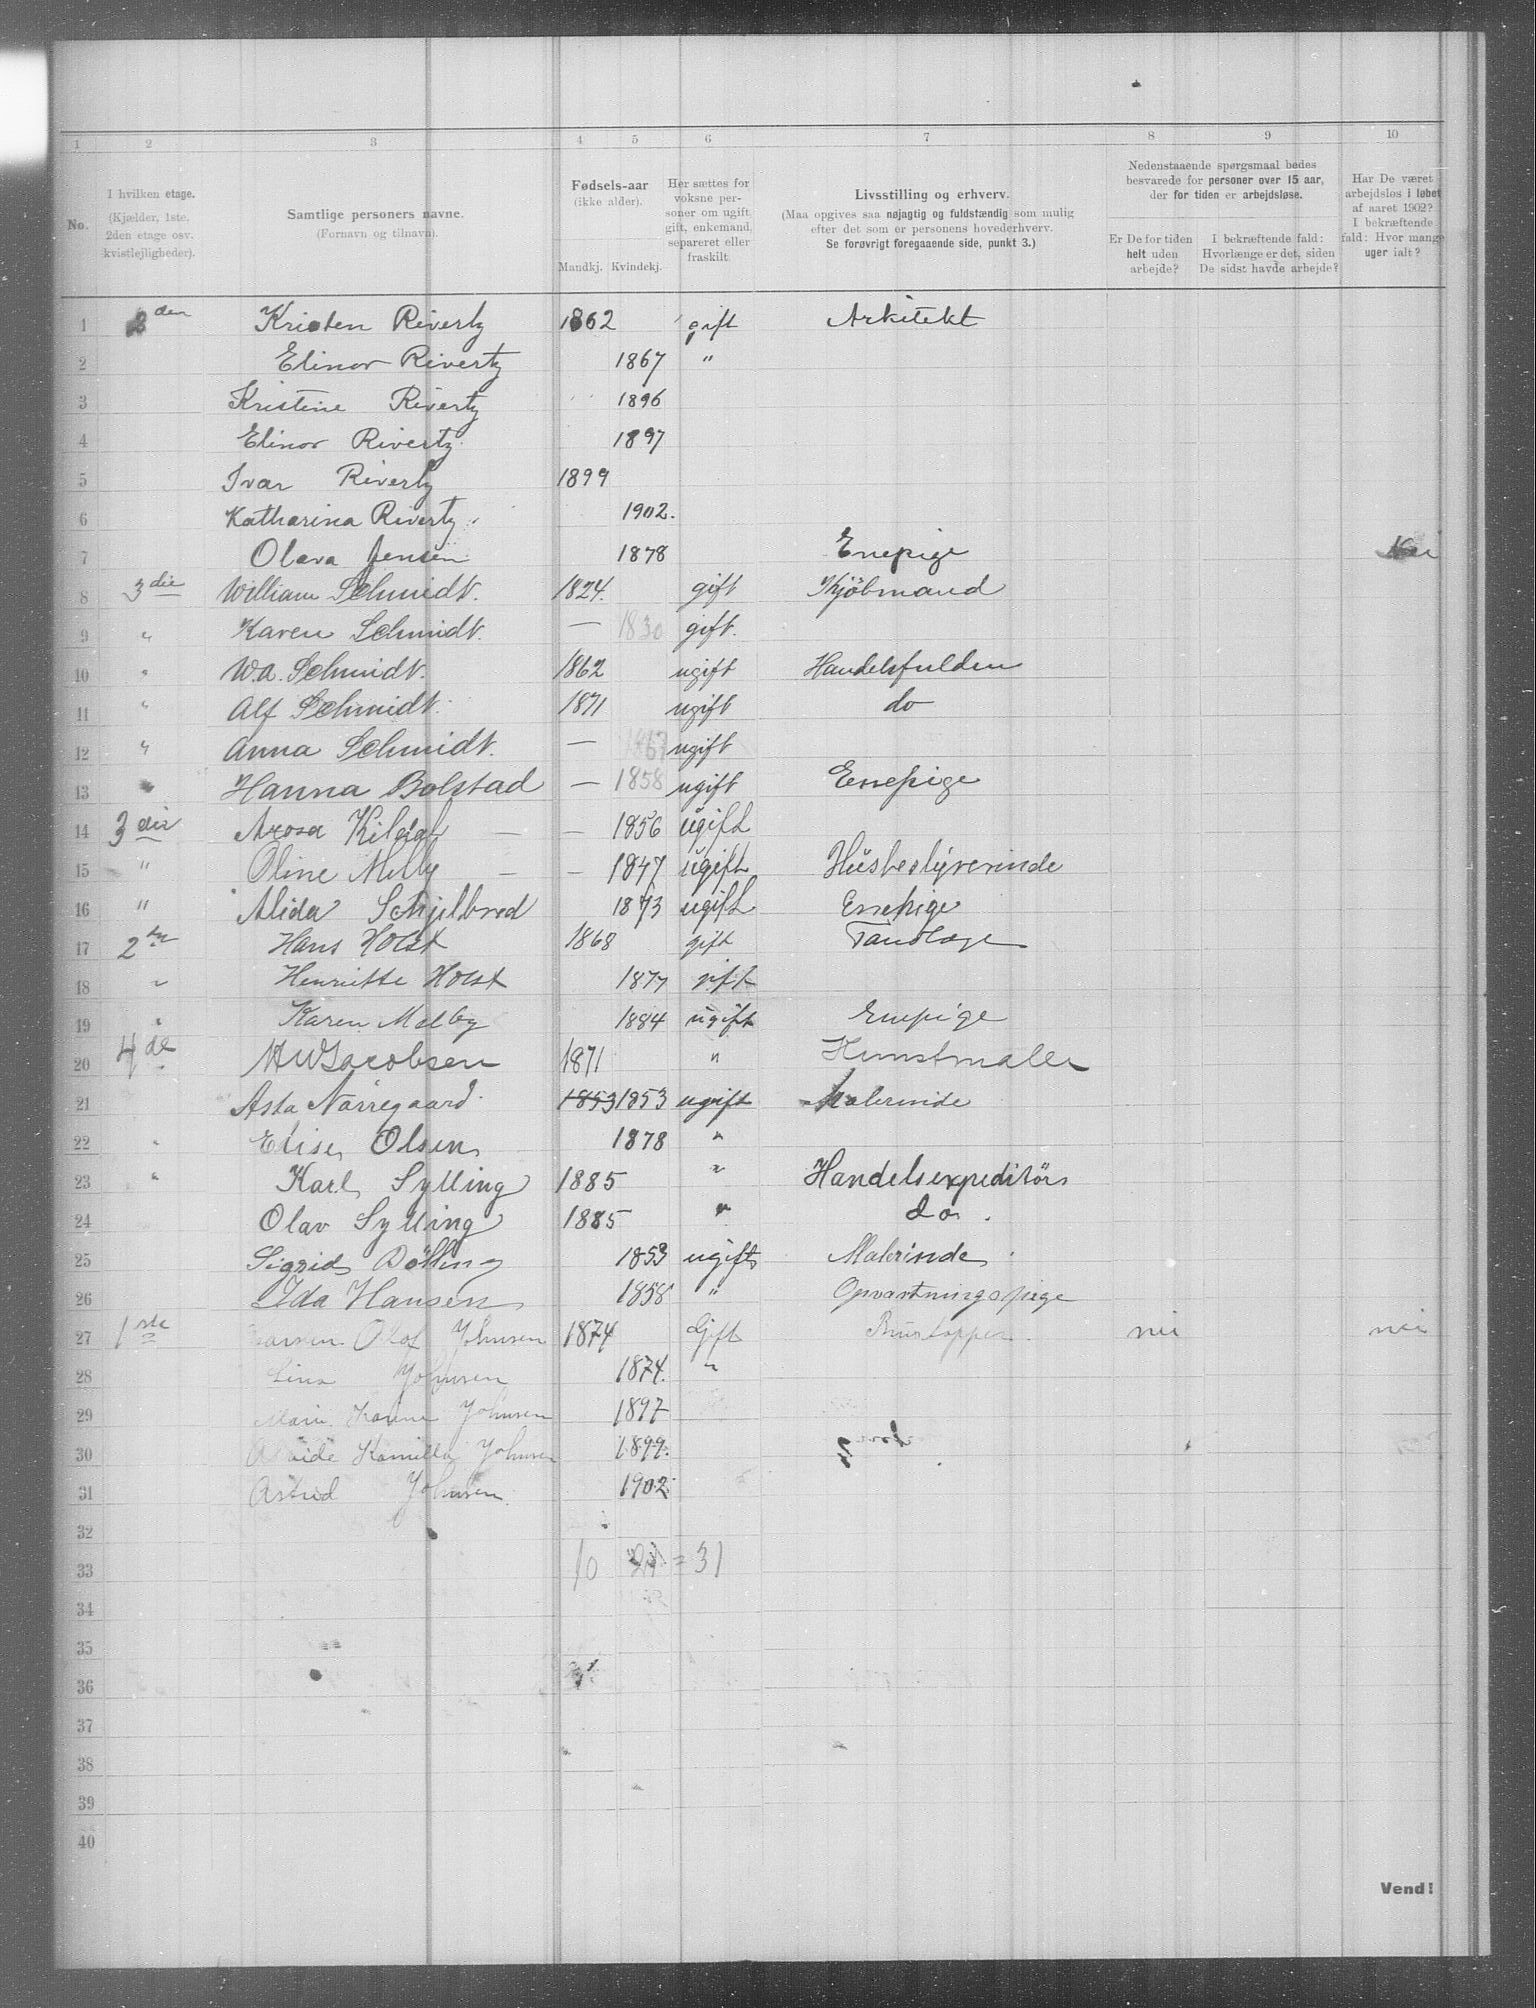 1 2 3 4 5 6 7 8 9 10
No.
I hvilken etage.
(Kjælder, 1ste.
2den etage osv.
kvistlejligheder).
Samtlige personers navne.
(Fornavn og tilnavn).
Fødsels-aar
(ikke alder).
Mandkj. Kvindekj.
Her sættes for
voksne per-
soner om ugift
gift, enkemand,
separeret eller
fraskilt.
Livsstilling og erhverv.
(Maa opgives saa nøjagtig og fuldstændig som mulig
efter det som er personens hovederhverv.
Se forøvrigt foregaaende side, punkt 3.)
Nedenstaaende spørgsmaal bedes
besvarede for personer over 15 aar,
der for tiden er arbejdsløse.
Er De for tiden
helt uden
arbejde?
I bekræftende fald:
Hvorlænge er det, siden
De sidst havde arbejde?
Har De været
arbejdsløs i løbet
af aaret 1902?
I bekræftende
fald: Hvor mange
uger ialt?
1 2den Kristen Rivertz 1862 gift Arkitekt
2 Elinor Rivertz 1867 "
3 Kristine Rivertz 1896
4 Elinor Rivertz 1897
5 Ivar Rivertz 1899
6 Katharina Rivertz. 1902.
7 Olava Jensen 1878 Enepige Nei
8 3die William Schmidt. 1824. gift Kjöbmand
9 " Karen Schmidt. — 1830 gift.
10 " W.A. Schmidt. 1862 ugift Handelsfuldm
11 " Alf Schmidt. 1871 ugift do
12 " Anna Schmidt. — 1867 ugift
13 " Hanna Bolstad — 1858 ugift Enepige
14 3die Kildal — — 1856 ugift
15 " Oline Melby — — 1847 ugift Husbestyrerinde
16 " Alida Schjelbred 1873 ugift Enepige
17 2den Hans Holst 1868 gift Tandlæge
18 " Henriette Holst 1877 gift
19 " Karen Melby 1884 ugift Enepige
20 4de Jacobsen 1871 " Kunstmaler
21 Asta Nörregaard. 1853 1853 ugift Malerinde
22 " Elise Olsen 1878 "
23 " Karl Sylling 1885 " Handelsexpeditörs
24 Olav Sylling 1885 " do.
25 Sigrid Bölling 1853 ugift Malerinde
26 Ida Hansen 1858 " Opvartningspige
27 1ste Olaf Johnsen 1874 Gift nei nei
28 Lina Johnsen 1874. "
29 Marie Johnsen 1897
30 Kamilla Johnsen 1899.
31 Astrid Johnsen. 1902.
32
33 10 21 = 31
34
35
36
37
38
39
40
Vend!